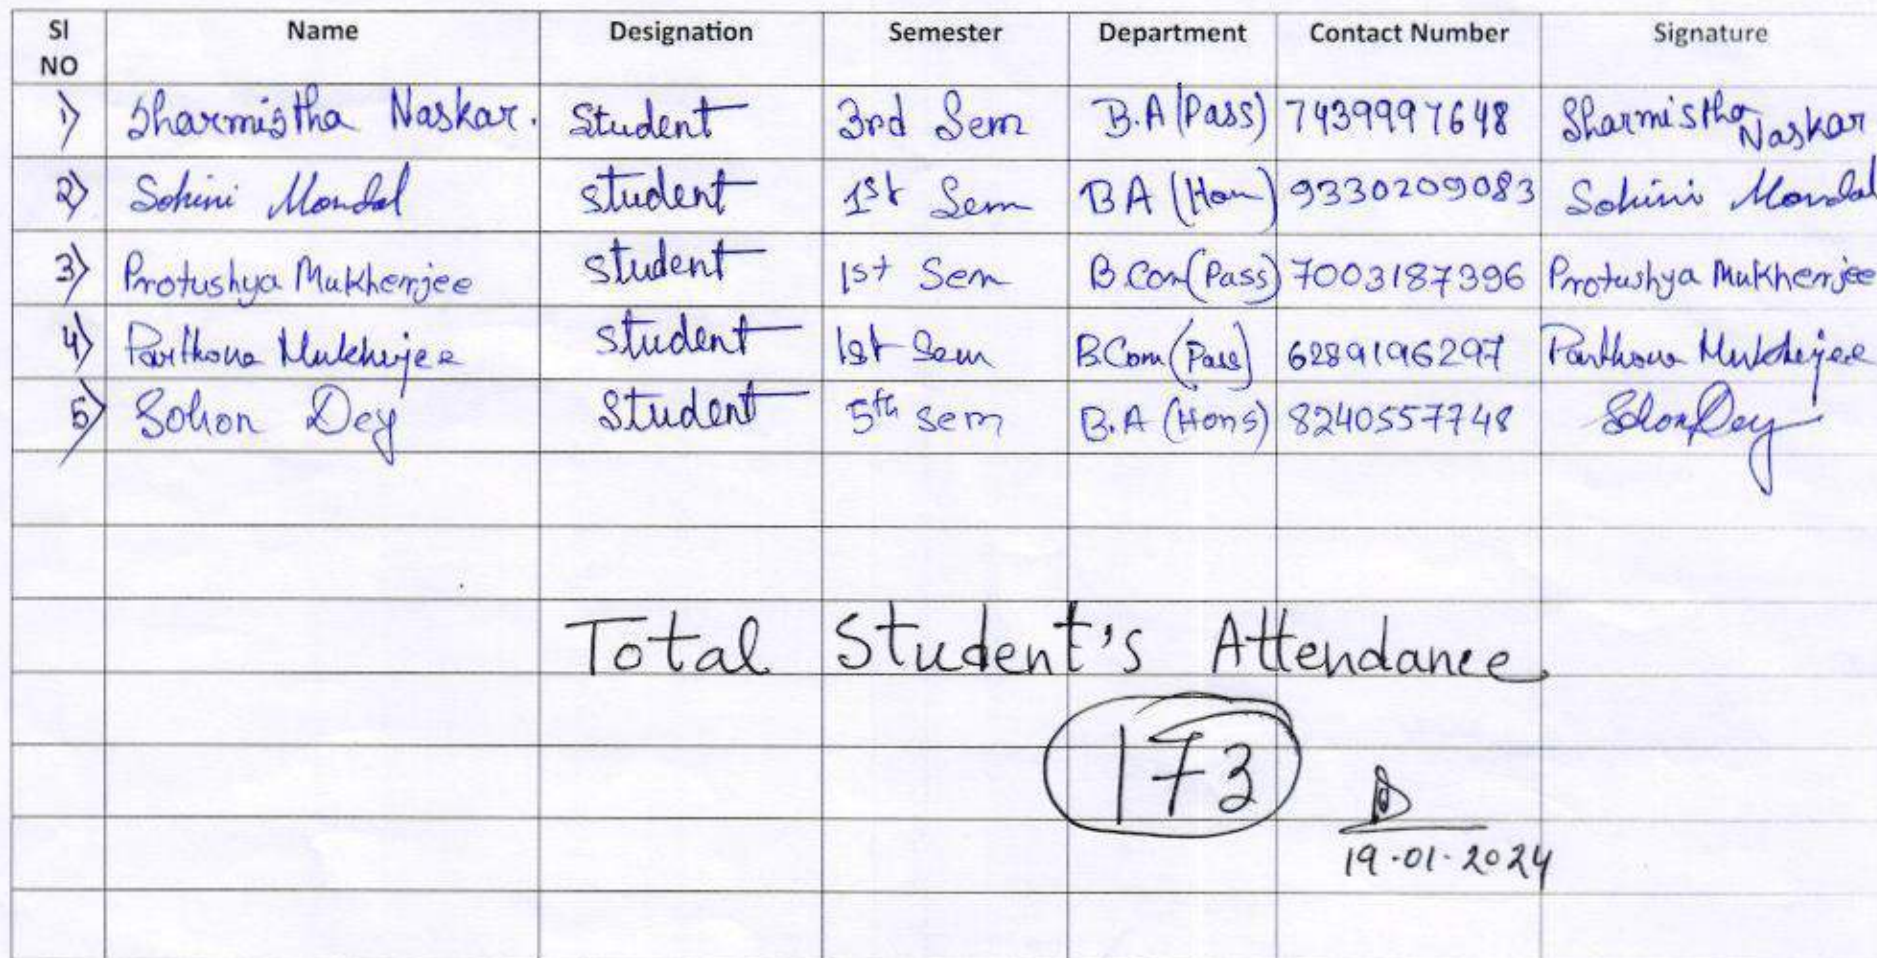 Sl NO Name Designation Semester Department Contact Number Signature
1) Sharmistha Naskar. Student 3rd Sem B.A (Pass) 7439997648 Sharmistha Naskar
2) Sohini Mondal student 1st Sem BA (Hon) 9330209083 Sohini Mondal
3) Protushya Mukherjee student 1st Sem B.Com (Pass) 7003187396 Protushya Mukherjee
4) Mukherjee student 1st Sem B.Com (Pass) 6289196297 Mukherjee
5) Sohon Dey Student 5th sem B.A (Hons) 8240557748 Sohon Dey
Total Student's Attendance
173
19-01-2024